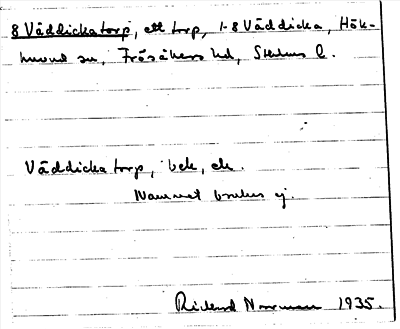 8 Väddickatorp, ett torp, 1-8 Väddicka, Hök-
huvud sn, Frösåkers hd, Sthlms l.
Väddicka torp, bek, ek.
Namnet brukas ej.
Rickard Norrman 1935.